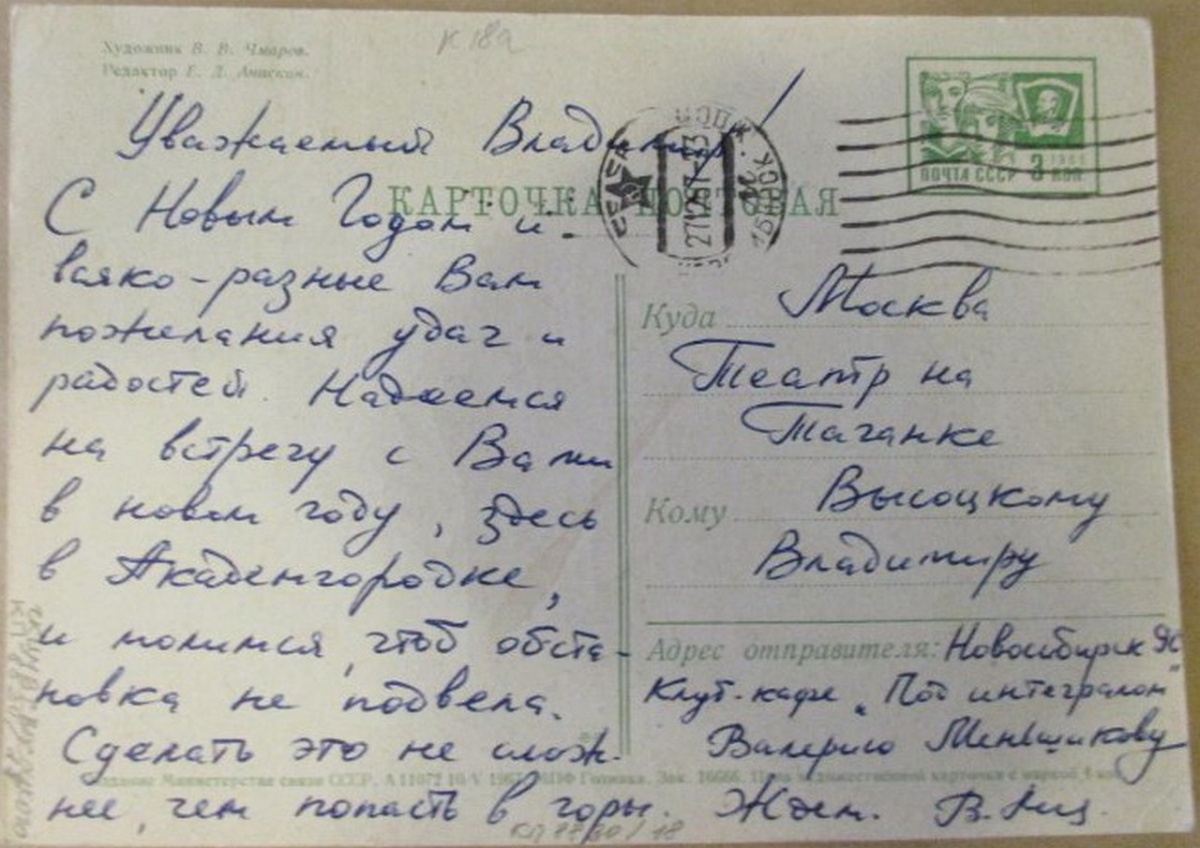 Художник В. В. Чмаров.
Редактор Е. Д. Анискин.
К 18а
Уважаемый Владимир!
С Новым Годом и
всяко-разные Вам
пожелания удач и
радостей. Надеемся
на встречу с Вами
в новом году, здесь
в Академгородке,
и молимся, чтоб обста-
новка не подвела.
Сделать это не слож-
нее, чем попасть в горы. Ждем. В. Мнщ.
КАРТОЧКА ПОЧТОВАЯ
27126713
ПОЧТА СССР 3 КОП.
1966
Куда Москва
Театр на
Таганке
Кому Высоцкому
Владимиру
Адрес отправителя: Новосибирск 90
Клуб-кафе „Под интегралом"
Валерию Меньщикову
Издание Министерства связи СССР. А 11072 10/V 1967. МПФ Гознака. Зак. 16666. Цена художественной карточки с маркой 4 коп.